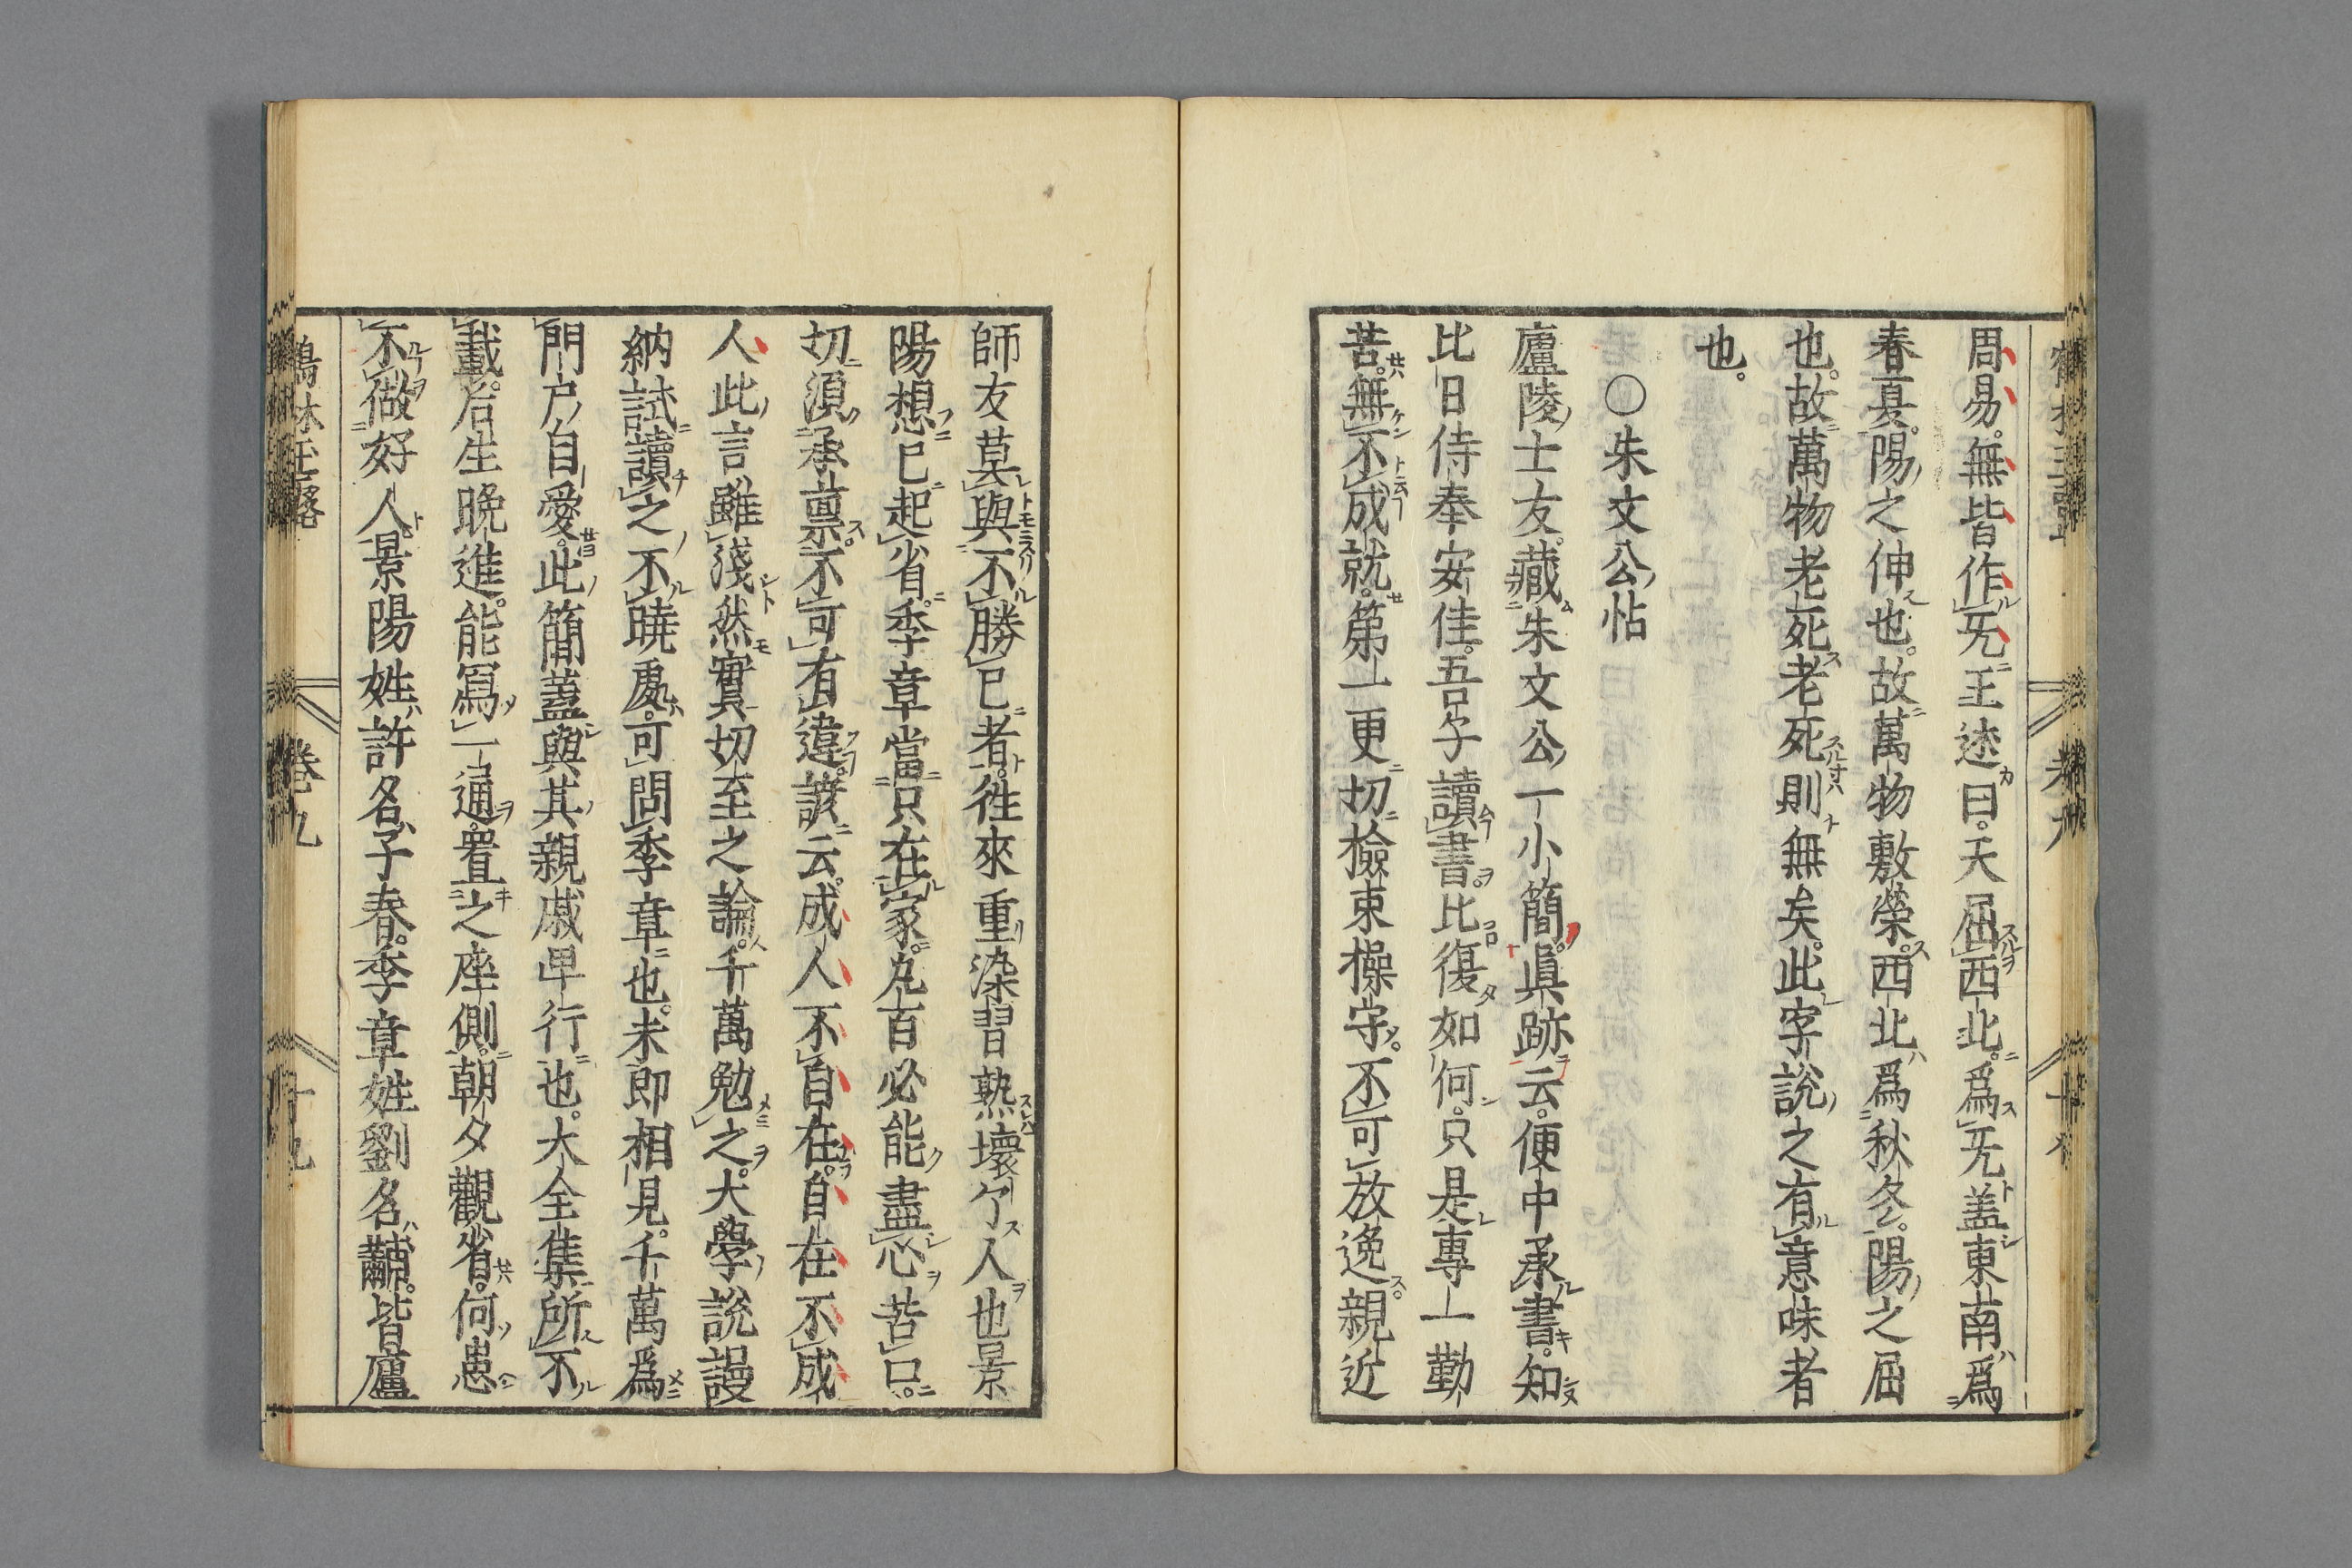 周易。無皆作无。王述曰。天屈西北。爲无。盖東南爲
春夏。陽之伸也。故萬物敷榮。西北爲秋冬。陽之屈
也。故萬物老死。老死則無矣。此字説之有意味者
也。
○朱文公帖
廬陵士友。藏朱文公一小簡。眞跡云。便中承書。知
比日侍奉安佳。吾子讀書。比復如何。只是專一勤
苦。無不成就。第一更切檢束操守。不可放逸。親近
師友。莫與不勝已者。徃來重染習熟壞了人也景
陽想已起省。季章當只在家。凢百必能盡心苦口。
切須承稟。不可有違。諺云。成人不自在。自在不成
人。此言雖淺然實切至之論。千萬勉之。大學説謾
納試讀之。不曉處。可問季章也。未即相見。千萬爲
門戸自愛。此簡蓋與其親戚卑行也。大全集所不
載。后生晩進。能寫一通。置之座側。朝夕觀省。何患
不做好人。景陽姓許名子春。季章姓劉名黼。皆廬
鶴林玉露　卷九　十九